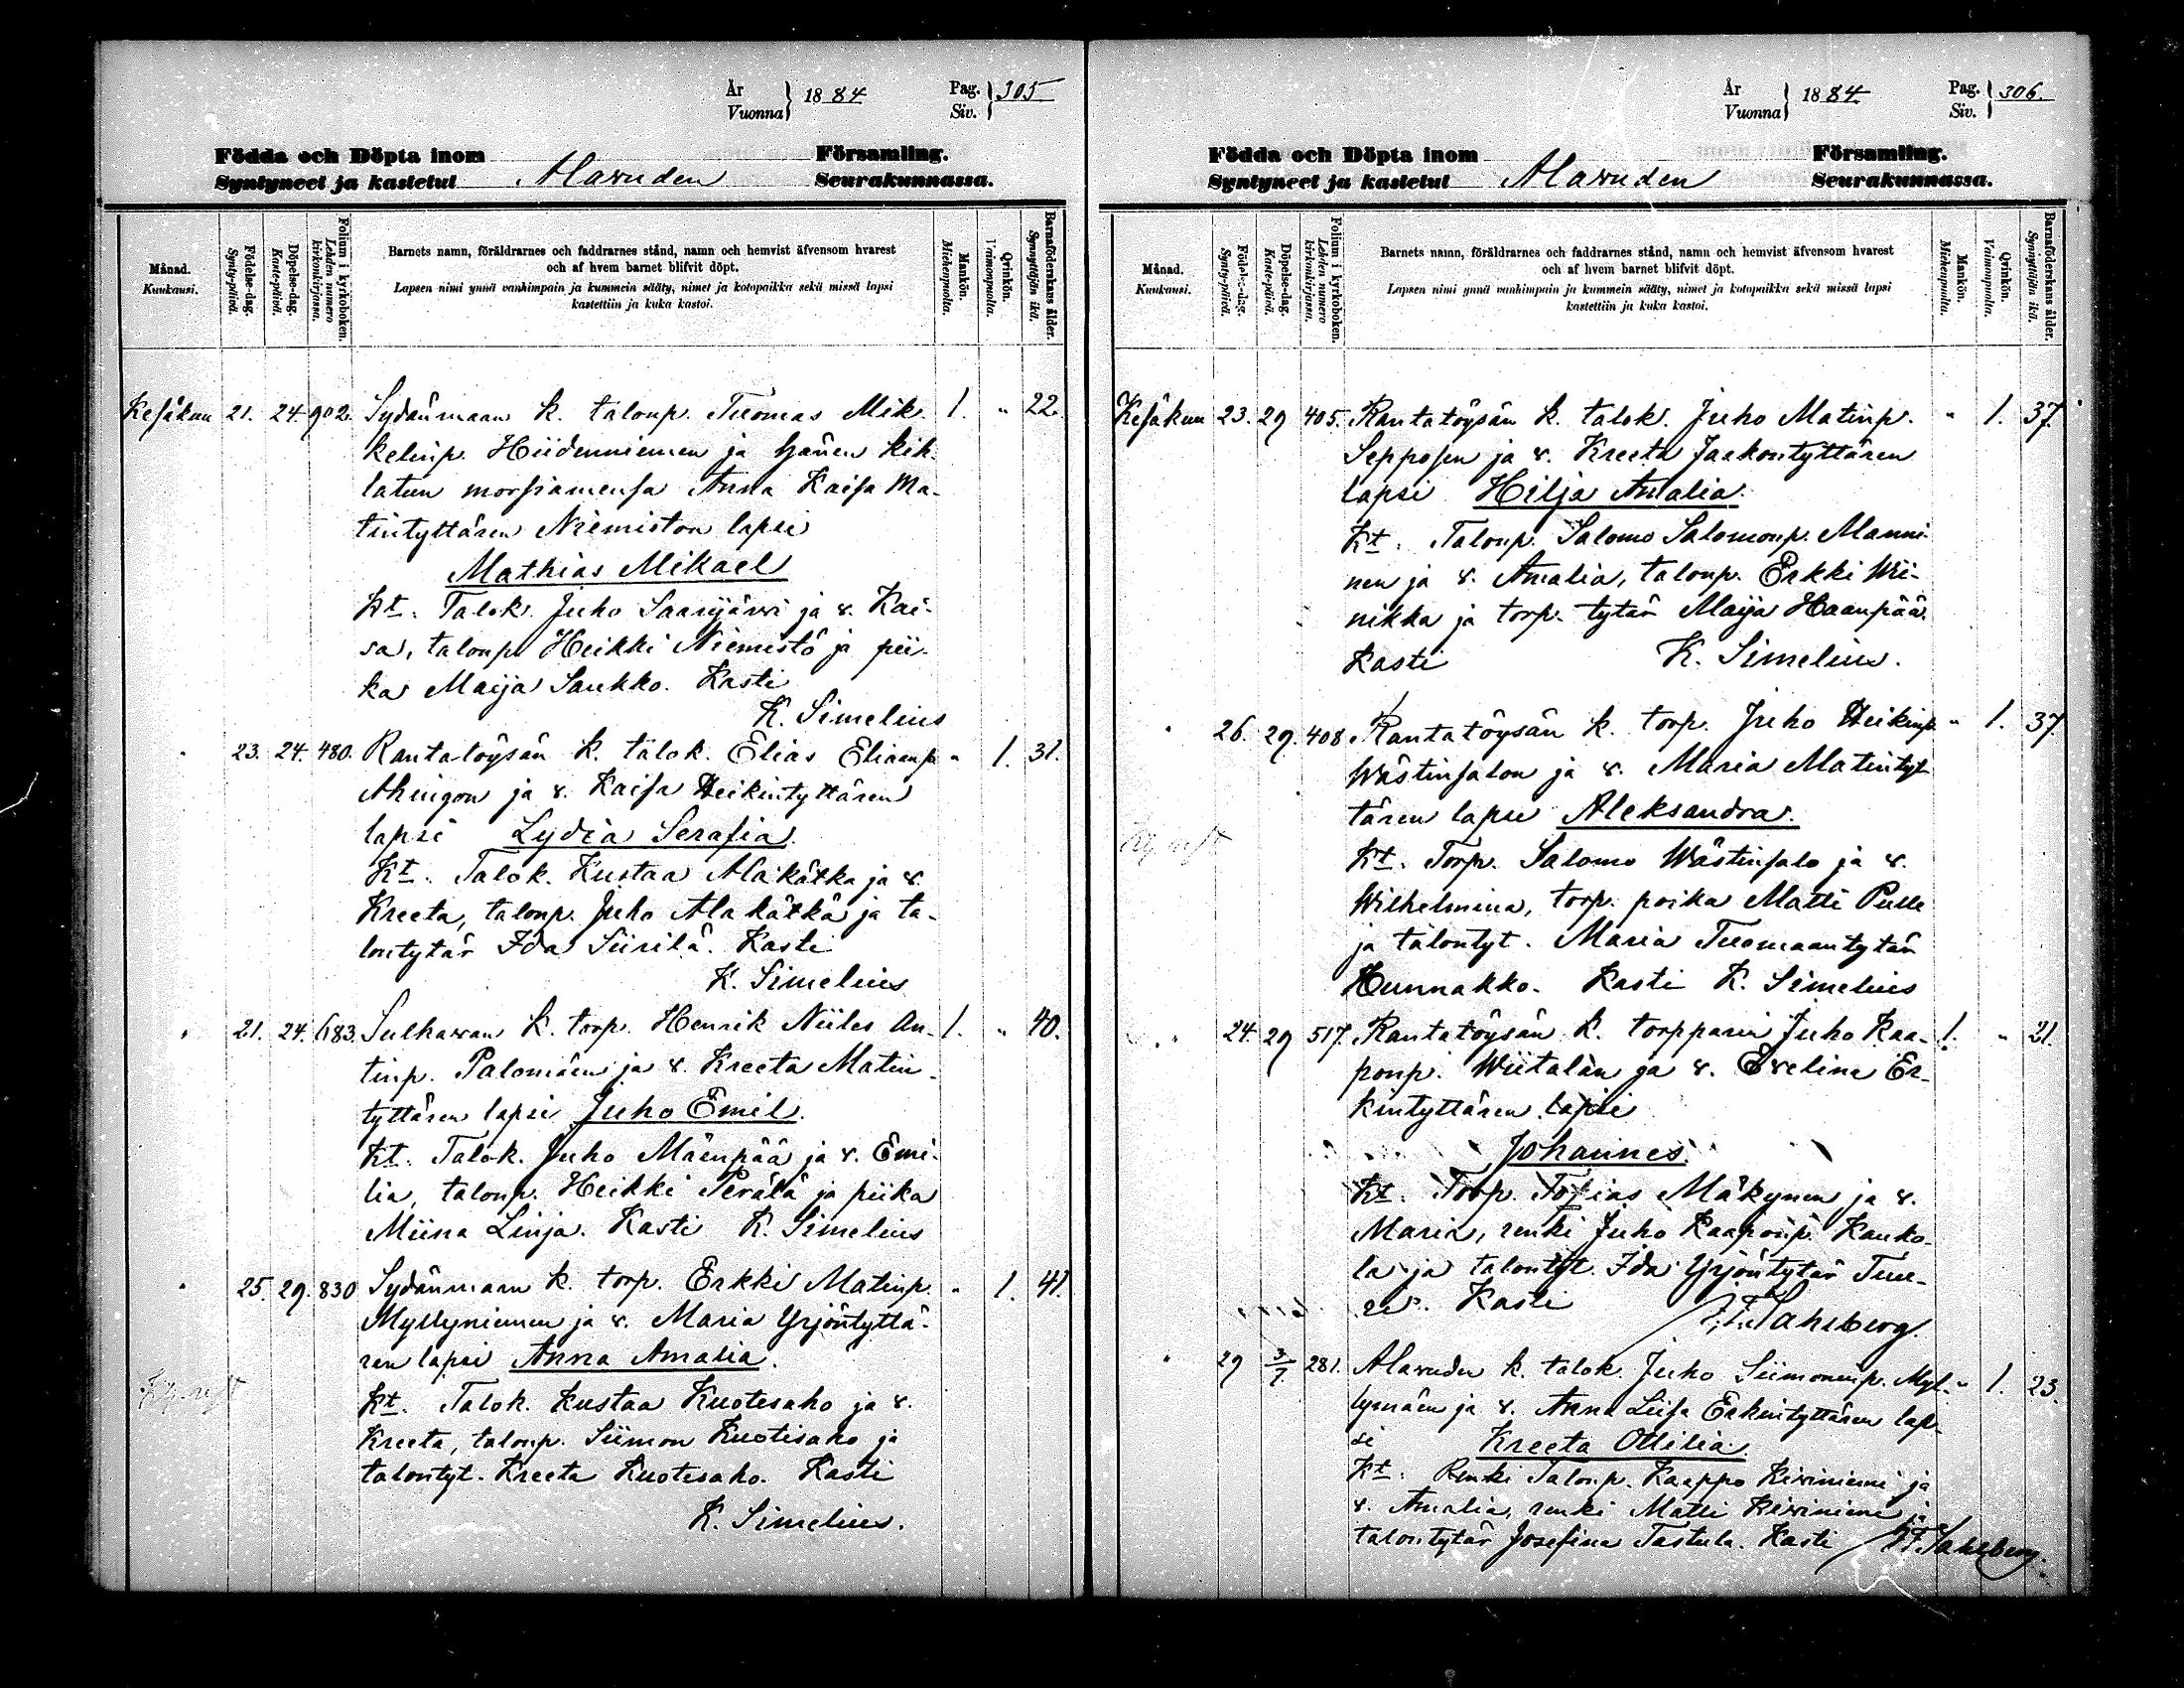 År
Vuonna } 1884
Pag.
Siv. } 305
Födda och Döpta inom Församling.
Syntyneet ja kastetut Alavuden Seurakunnassa.
Månad.
Kuukausi.
Födelse-dag.
Synty-päivä.
Döpelse-dag.
Kaste-päivä.
Folium i kyrkoboken.
Lehden numero
kirkonkirjassa.
Barnets namn, föräldrarnes och faddrarnes stånd, namn och hemvist äfvensom hvarest
och af hvem barnet blifvit döpt.
Lapsen nimi ynnä vanhimpain ja kummein sääty, nimet ja kotopaikka sekä missä lapsi
kastettiin ja kuka kastoi.
Mankön.
Miehenpuolta.
Qvinkön.
Vaimonpuolta.
Barnaföderskans ålder.
Synnyttäjän ikä.
Kesäkuu 21. 24. 902. Sydänmaan k. talonp. Tuomas Mik- 1. " 22.
kelinp. Hiidenniemen ja hänen kih-
latun morsiamensa Anna Kaisa Ma-
tintyttären Niemiston lapsi
Mathias Mikael
Kt. Talok. Juho Saarijärvi ja v. Kai-
sa, talonp. Heikki Niemistö ja pii-
ka Maija Saukko. Kasti
K. Simelius
" 23. 24. 480. Rantatöysän k. talok. Elias Eliaanp. " 1. 31.
Ahingon ja v. Kaisa Heikintyttären
lapsi Lydia Serafia.
Kt. Talok. Kustaa Alakätkä ja v.
Kreeta, talonp. Juho Alakätkä ja ta-
lontytär Ida Siirilä. Kasti
K. Simelius
" 21. 24. 683. Sulkavan k. torp. Henrik Niiles An- 1. " 40.
tinp. Palomäen ja v. Kreeta Matin-
tyttären lapsi Juho Emil.
Kt. Talok. Juho Mäenpää ja v. Emi-
lia, talonp. Heikki Perälä ja piika
Miina Linja. Kasti K. Simelius
" 25. 29. 830 Sydänmaan k. torp. Erkki Matinp. " 1. 41.
Myllyniemen ja v. Maria Yrjöntyttä-
ren lapsi Anna Amalia.
Kt. Talok. Kustaa Kuotesaho ja v.
Kreeta, talonp. Siimon Kuotisaho ja
talontyt. Kreeta Kuotesaho. Kasti
K. Simelius.
År
Vuonna } 1884
Pag.
Siv. } 306.
Födda och Döpta inom Församling.
Syntyneet ja kastetut Alavuden Seurakunnassa.
Månad.
Kuukausi.
Födelse-dag.
Synty-päivä.
Döpelse-dag.
Kaste-päivä.
Folium i kyrkoboken.
Lehden numero
kirkonkirjassa.
Barnets namn, föräldrarnes och faddrarnes stånd, namn och hemvist äfvensom hvarest
och af hvem barnet blifvit döpt.
Lapsen nimi ynnä vanhimpain ja kummein sääty, nimet ja kotopaikka sekä missä lapsi
kastettiin ja kuka kastoi.
Mankön.
Miehenpuolta.
Qvinkön.
Vaimonpuolta.
Barnaföderskans ålder.
Synnyttäjän ikä.
Kesäkuu 23. 29 405. Rantatöysän k. talok. Juho Matinp. " 1. 37.
Sepposen ja v. Kreeta Jaakontyttären
lapsi Hilja Amalia.
Kt. Talonp. Salomo Salomonp. Manni-
nen ja v. Amalia, talonp. Erkki Wii-
nikka ja torp. tytär Maija Haanpää.
Kasti K. Simelius.
" 26. 29. 408. Rantatöysän k. torp. Juho Heikinp. " 1. 37
Wästinsalon ja v. Maria Matintyt-
tären lapsi Aleksandra.
Kt. Torp. Salomo Wästinsalo ja v.
Wilhelmina, torp. poika Matti Pulle
ja talontyt. Maria Tuomaantytär
Hunnakko. Kasti K. Simelius
" 24. 29 517. Rantatöysän k. torpparin Juho Kaa- 1. " 21.
ponp. Wiitalan ja v. Evelina Er-
kintyttären lapsi
Johannes.
Kt. Torp. Tofias Mäkynen ja v.
Maria, renki Juho Kaaponp. Kauko-
la ja talontyt. Ida Yrjöntytär Tuu-
ri. Kasti Sahlberg.
" 29 3/7 281. Alavuden k. talok. Juho Siimoninp. Myl- " 1. 23.
lymäen ja v. Anna Liisa Erkintyttären lap-
si Kreeta Otilia.
Kt. Renki Talonp. Kaappo Kiviniemi ja
v. Amalia, renki Matti Kiviniemi ja
talontytär Josefina Tastula. Kasti Sahlberg.